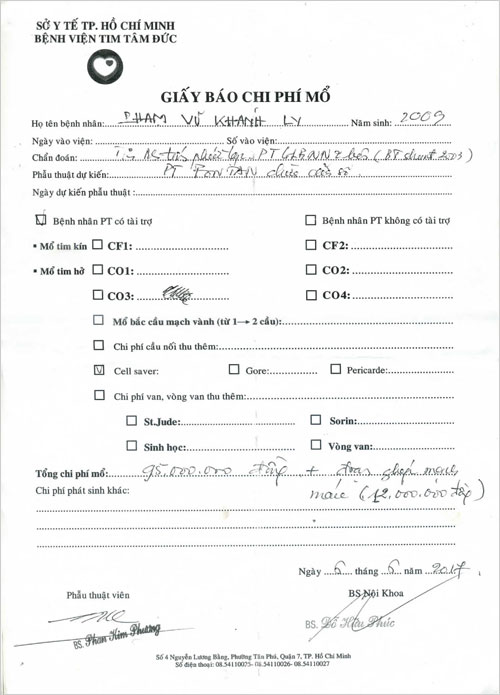 SỞ Y TẾ TP. HỒ CHÍ MINH
BỆNH VIỆN TIM TÂM ĐỨC
GIẤY BÁO CHI PHÍ MỔ
Họ tên bệnh nhân: PHẠM VŨ KHÁNH LY Năm sinh: 2009
Ngày vào viện: Số vào viện:
Chẩn đoán:
Phẫu thuật dự kiến: PT FONTAN
Ngày dự kiến phẫu thuật:
Bệnh nhân PT có tài trợ Bệnh nhân PT không có tài trợ
• Mổ tim kín CF1: CF2:
• Mổ tim hở CO1: CO2:
CO3: CO4:
Mổ bắc cầu mạch vành (từ 1→ 2 cầu):
Chi phí cầu nối thu thêm:
Cell saver: Gore: Pericarde:
Chi phí van, vòng van thu thêm:
St.Jude: Sorin:
Sinh học: Vòng van:
Tổng chi phí mổ: 95.000.000 đồng + đoạn ghép mạch
Chi phí phát sinh khác: máu (12.000.000 đồng)
Ngày 6 tháng 6 năm 2017
Phẫu thuật viên BS Nội Khoa
BS. Phan Kim Phương BS. Đỗ Hữu Phúc
Số 4 Nguyễn Lương Bằng, Phường Tân Phú, Quận 7, TP. Hồ Chí Minh
Số điện thoại: 08.54110025- 08.54110026- 08.54110027